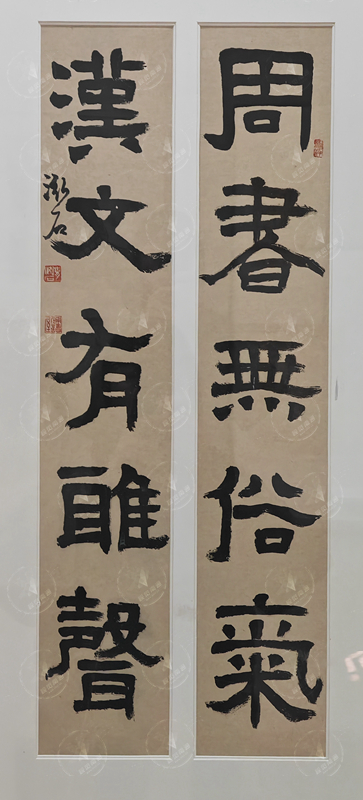 周書無俗氣
漢文有雅聲
石